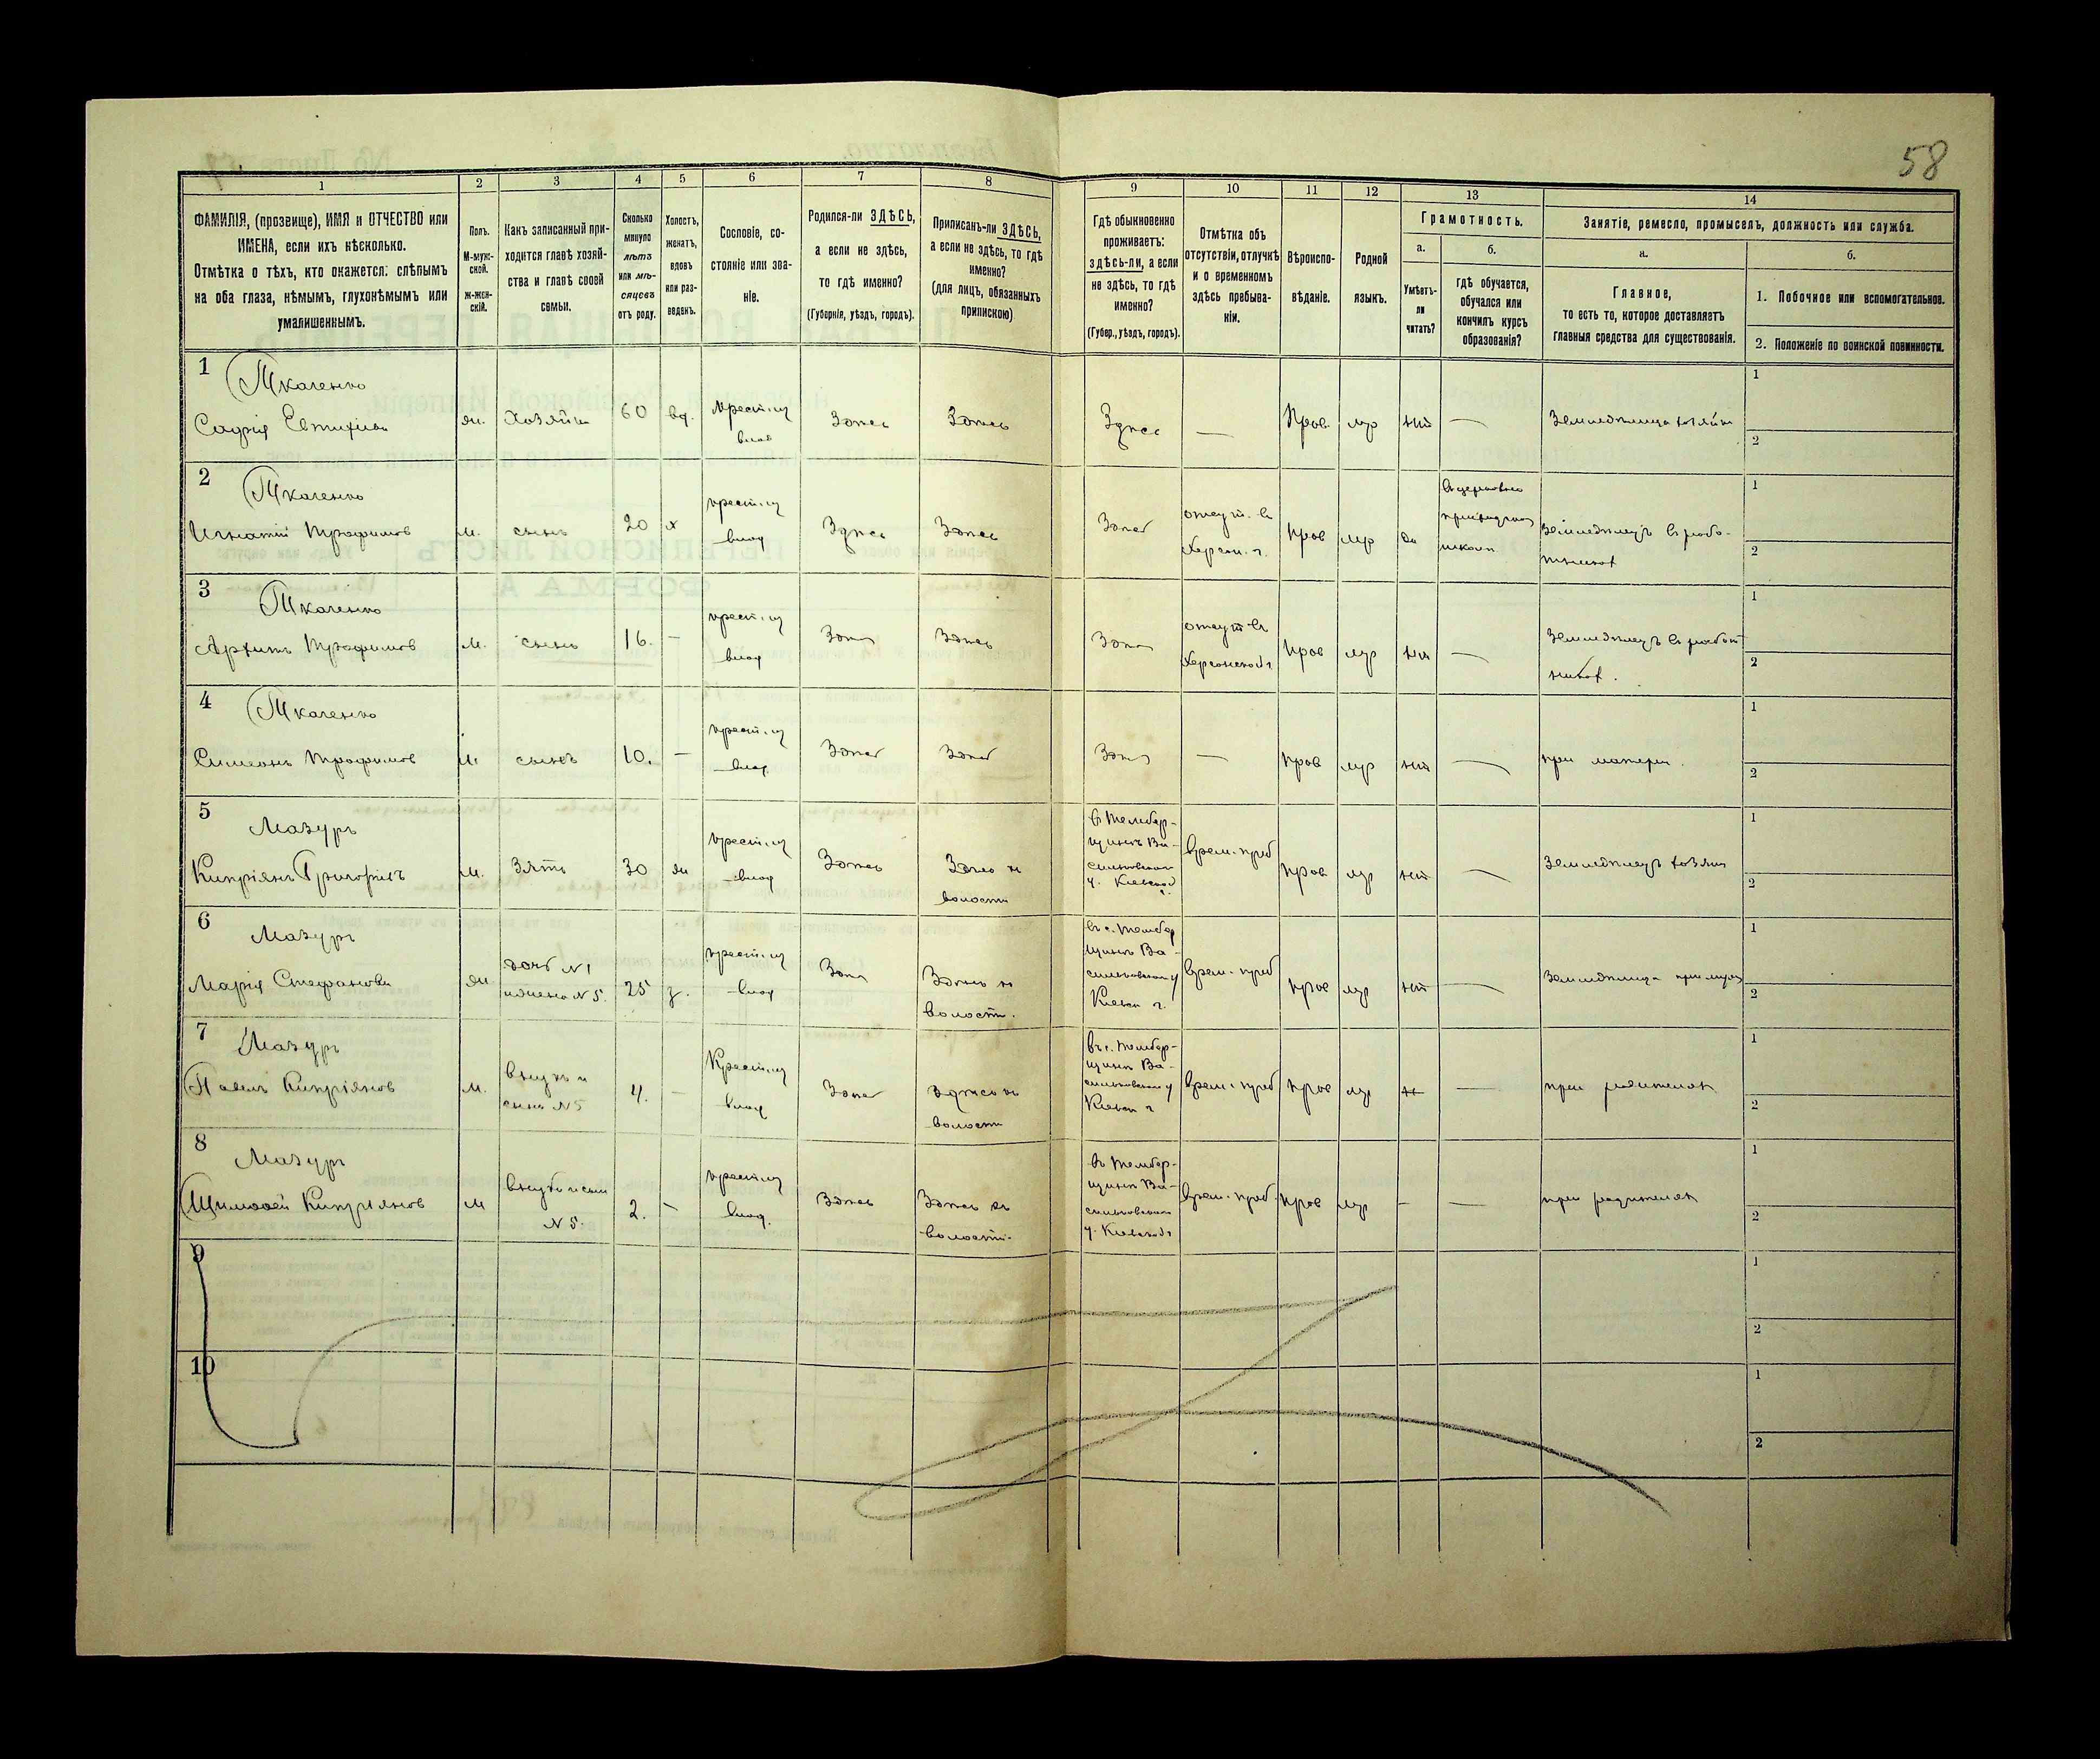 58
1 2 3 4 5 6 7 8 9 10 11 12 13 14
ФАМИЛІЯ, (прозвище), ИМЯ и ОТЧЕСТВО или
ИМЕНА, если ихъ нѣсколько.
Отмѣтка о тѣхъ, кто окажется: слѣпымъ
на оба глаза, нѣмымъ, глухонѣмымъ или
умалишеннымъ.
Полъ.
М-муж-
ской.
ж-жен-
скій.
Какъ записанный при-
ходится главѣ хозяй-
ства и главѣ своей
семьи.
Сколько
минуло
лѣтъ
или мѣ-
сяцевъ
отъ роду.
Холостъ,
женатъ,
вдовъ
или раз-
веденъ.
Сословіе, со-
стояніе или зва-
ніе.
Родился-ли ЗДѢСЬ,
а если не здѣсь,
то гдѣ именно?
(Губернія, уѣздъ, городъ).
Приписанъ-ли ЗДѢСЬ,
а если не здѣсь, то гдѣ
именно?
(для лицъ, обязанныхъ
припискою)
Гдѣ обыкновенно
проживаетъ:
здѣсь-ли, а если
не здѣсь, то гдѣ
именно?
(Губер., уѣздъ, городъ).
Отмѣтка объ
отсутствіи, отлучкѣ
и о временномъ
здѣсь пребыва-
ніи.
Вѣроиспо-
вѣданіе.
Родной
языкъ.
Грамотность.
а.
Умѣетъ-
ли
читать?
б.
гдѣ обучается,
обучался или
кончилъ курсъ
образованія?
Занятіе, ремесло, промыселъ, должность или служба.
а.
Главное,
то есть то, которое доставляетъ
главныя средства для существованія.
б.
1. Побочное или вспомогательное.
2. Положеніе по воинской повинности.
1
Ткаченко
Софія Евтихіева
жн. Хозяйка 60 вд. крест. из
влад
Здѣсь Здѣсь Здѣсь — Прав. мр нѣт — Земледѣлица хозяйка
1
2
2
Ткаченко
Игнатій Трофимов
м. сынъ 20 х крест. из
влад
Здѣсь Здѣсь Здѣсь
отсут. въ
Херсон. г.
прав мр да
школѣ
земледѣлецъ в рабо-
тникахъ
1
2
3
Ткаченко
Архипъ Трофимов
м. сынъ 16. — крест. из
влад
Здѣсь Здѣсь Здѣсь
отсут въ
Херсонской г
прав мр нѣт —
Земледѣлецъ в работ
никах.
1
2
4
Ткаченко
Симеонъ Трофимов
м сынъ 10. — крест. из
влад
Здѣсь Здѣсь Здѣсь — прав мр нѣт — при матери.
1
2
5
Мазуръ
Кипріянъ Григорьевъ
м. Зять 30 жн крест. из
влад
Здѣсь Здѣсь в
волости
Ва-
сильковскаго
у. Кіевской
г.
врем. преб
прав мр нѣт — Земледѣлецъ хозяин
1
2
6
Мазуръ
Марія Стефанова
жн дочь №1
и жена №5. 25 з. крест. из
влад
Здѣсь Здѣсь в
волости.
Ва-
сильковскаго у
Кіевск г.
врем. преб прав мр нѣт — Земледѣлица при мужѣ
1
2
7
Мазуръ
Павелъ Кипріянов
м. внукъ и
сынъ №5 4. — Крест. из
влад
Здѣсь Здѣсь в
волости
Ва-
сильковскаго у
Кіевск г
врем. преб прав мр н — при родителях
1
2
8
Мазуръ
Тимофей Кипріянов
м внукъ и сын
№5. 2. — крест. из
влад.
Здѣсь Здѣсь въ
волости.
Ва-
сильковскаго
у. Кіевской г
врем. преб. прав мр — — при родителях
1
2
9
1
2
10
1
2